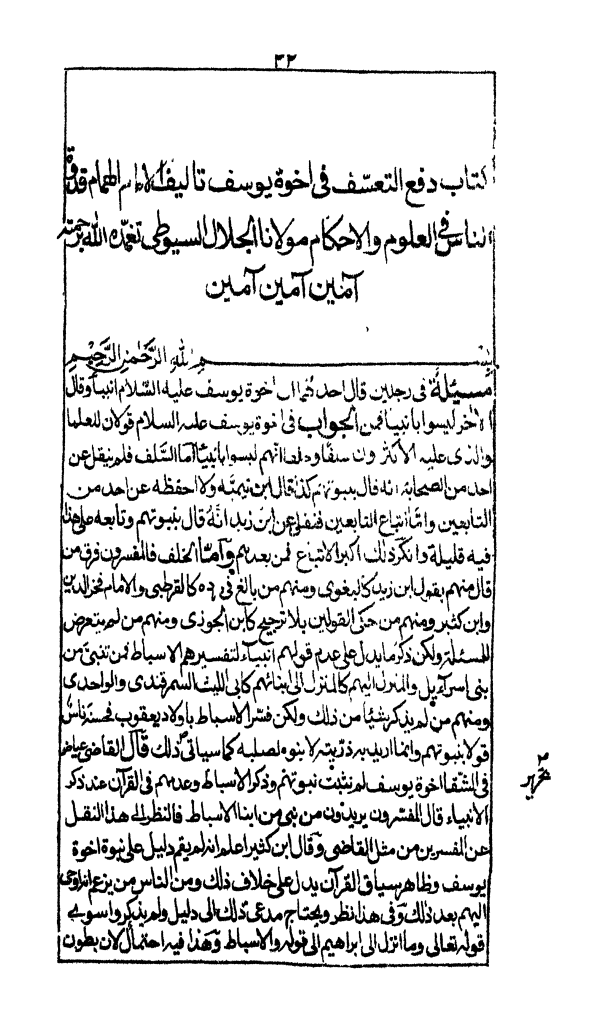 ٣٢
كتاب دفع التعسف فى اخوة يوسف تاليف الامام الهمام قدوة
الناس فى العلوم والاحكام مولانا الجلال السيوطى تغمده الله برحمته
آمنين آمين آمين
بسم الله الرحمن الرحيم
مسئلة فى رجلين قال احدهما ان اخوة يوسف عليه السلام انبياء وقال
الاخر ليسوا بانبياء فمن الجواب فى اخوة يوسف عليه السلام قولان للعلما
والذى عليه الاكثرون سلفا وخلفا انهم ليسوا بانبياء اما السلف فلم ينقل عن
احد من الصحابة انه قال بنبوتهم كذا قال ابن تيمية ولا احفظه عن احد من
التابعين واما اتباع التابعين فنقل عن ابن زيد انه قال بنبوتهم وتابعه على هذا
فيه قليلة وانكر ذلك اكبر الاتباع فمن بعدهم واما الخلف فالمفسرون فرق من
قال منهم بقول ابن زيد كالبغوى ومنهم من بالغ فى رده كالقرطبى والامام فخر الدين
وابن كثير ومنهم من حكى القولين بلا ترجيح كابن الجوزى ومنهم من لم يتعرض
للمسئلة ولكن ذكر ما يدل على عدم قولهم انبياء لتفسيرهم الاسباط فمن تنبى من
بنى اسرآئيل والمنزل اليهم كالمنزل الى ابنائهم كابى الليث السمرقندى والواحدى
ومنهم من لم يذكر شيئا من ذلك ولكن فسر الاسباط باولاد يعقوب فحسبه ناس
قولا بنبوتهم وانما اريد به ذريته لا بنوه لصلبه كما سياتى ذلك قال القاضى عياض
فى الشفا اخوة يوسف لم تثبت نبوتهم وذكر الاسباط وعدهم فى القرآن عند ذكر
الانبياء قال المفسرون يريدون من نبى من ابنا الاسباط فانظر الى هذا النقل
عن المفسرين من مثل القاضى وقال ابن كثير اعلم انه لم يقم دليل على نبوة اخوة
يوسف وظاهر سياق القرآن يدل على خلاف ذلك ومن الناس من يزعم انه اوحى
اليهم بعد ذلك وفى هذا نظر ويحتاج مدعى ذلك الى دليل ولم يذكروا سوى
قوله تعالى وما انزل الى ابراهيم الى قوله والاسباط وهذا فيه احتمال لان بطون
٣ تحرير